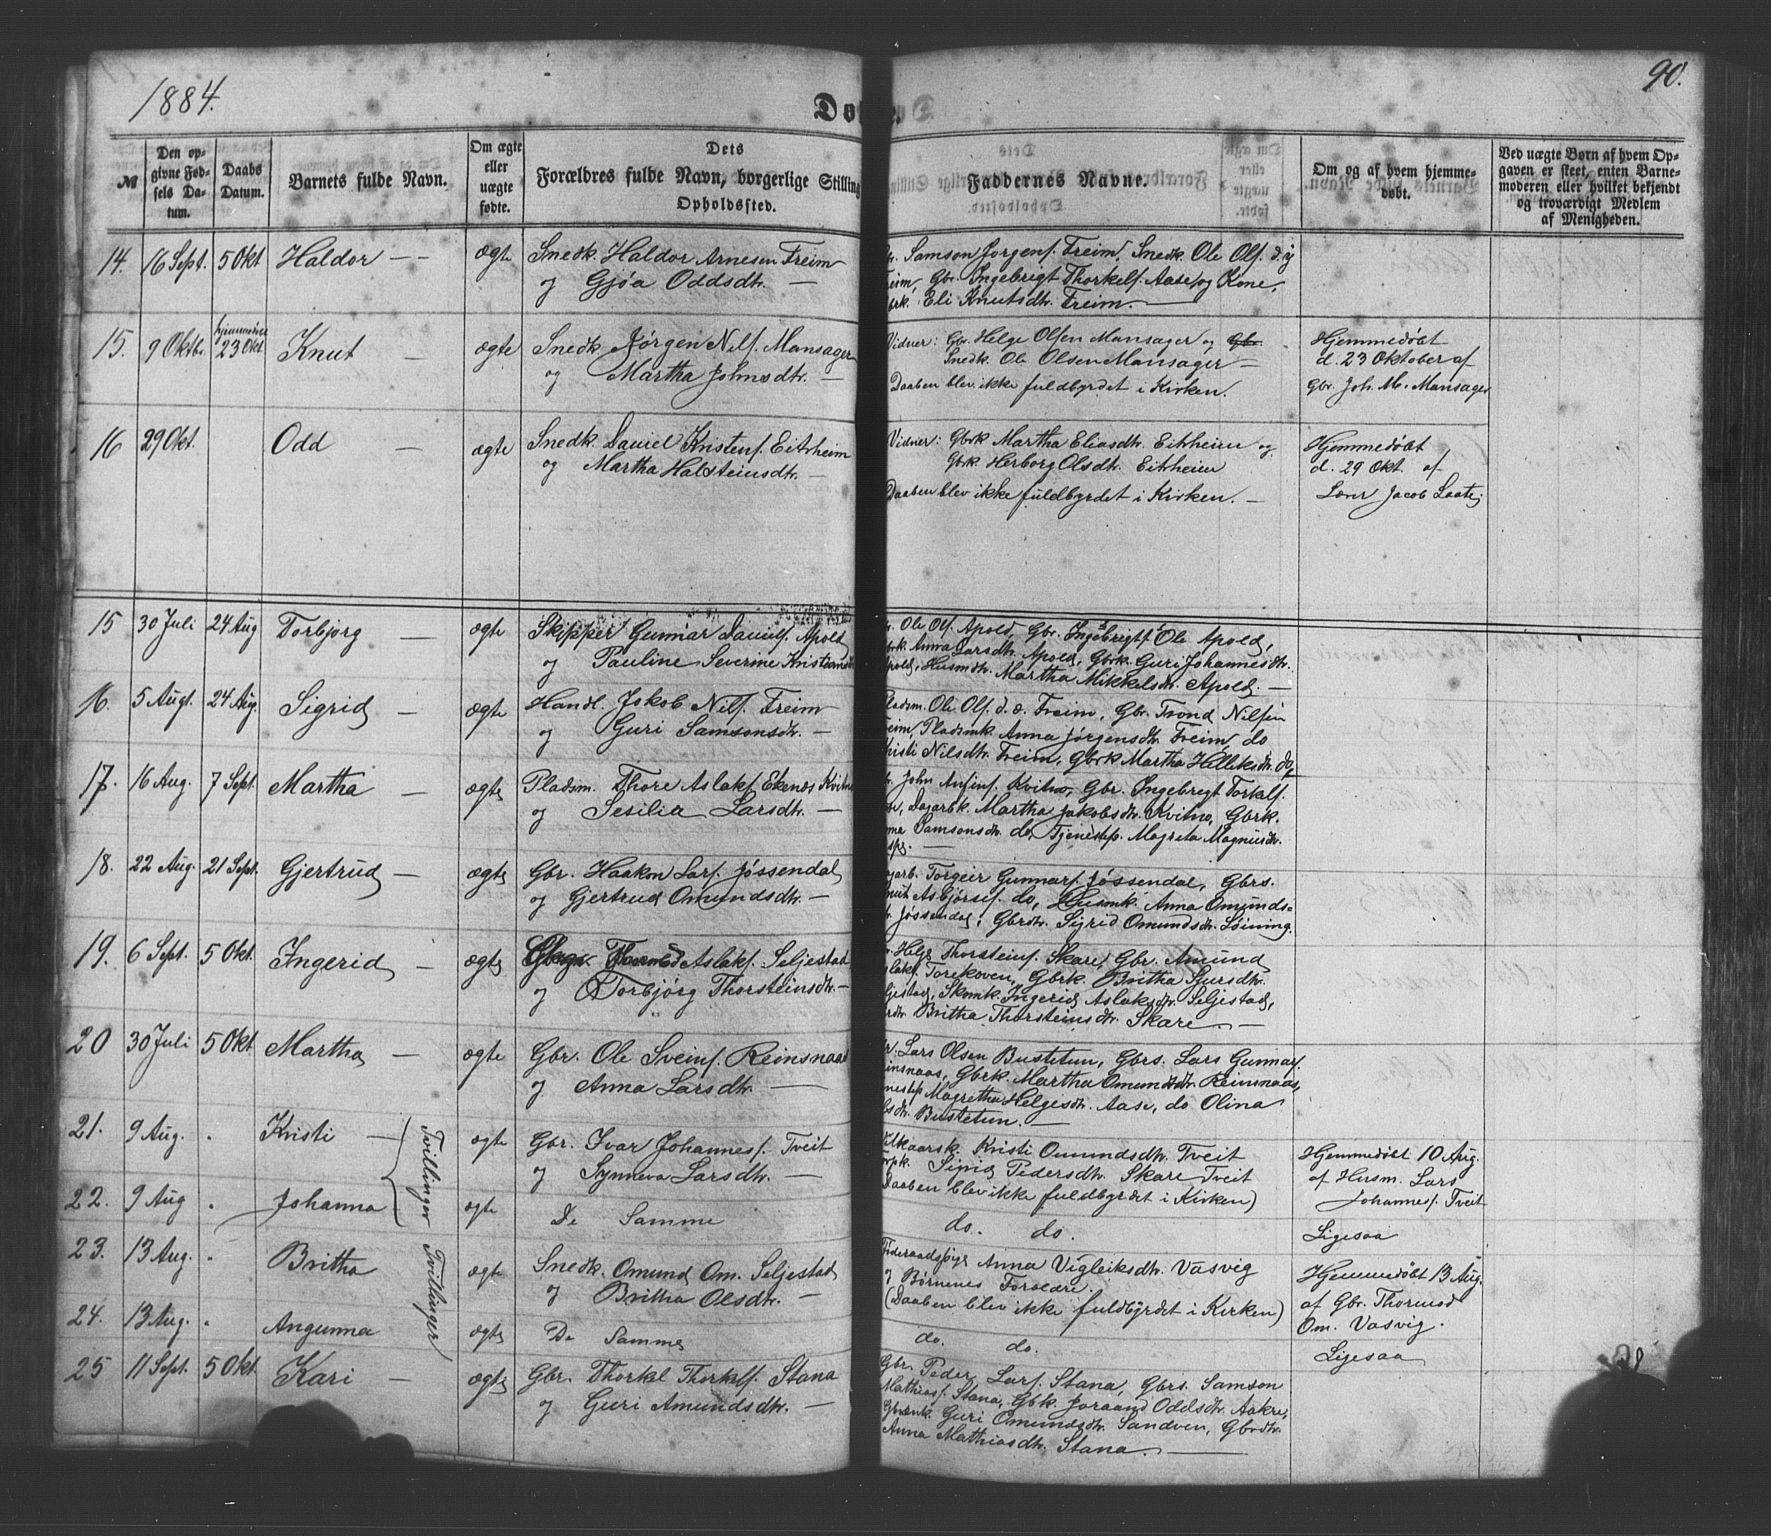 1884.
90.
Dø
e.
№
Den op-
givne Fød-
sels Da-
tum.
Daabs
Datum.
Barnets fulde Navn.
Om ægte
eller
uægte
fødte.
Dets
Forældres fulde Navn, borgerlige Stilling
Opholdssted.
Faddernes Navne.
Om og af hvem hjemme-
døbt.
Ved uægte Børn af hvem Op-
gaven er skeet, enten Barne-
moderen eller hvilket bekjendt
og troværdigt Medlem
af Menigheden.
14. 16 Sept. 5 Okt Haldor — — ægte Snedk. Haldor Arnesen Freim
og Gjøa Oddsdtr. —
Samson Jørgens. Freim, Snedk. Ole Ols. d.y
Freim, Gbr. Ingebrigt Thorkels. Aase, og Kone,
Eli Knutsdtr. Freim. —
15. 9 Oktbr. hjemmedøbt 23 Okt. Knut — ægte Snedk. Jørgen Nils. Mansager
og Martha Johnsdtr. —
Vidner: Gbr. Helge Olsen Mansager og Gbr.
Snedk. Ole Olsen Mansager —
Daaben blev ikke fuldbyrdet i Kirken.
Hjemmedøbt
d. 23 Oktober af
Gbr. Joh. M. Mansager
16 29 Okt. Odd — ægte Snedk. Daniel Kristens. Eitrheim
og Martha Halsteinsdtr. —
Vidner: Gbrk Martha Eliasdtr. Eitrheim og
Gbrk. Herborg Olsdtr. Eitrheim
Daaben blev ikke fuldbyrdet i Kirken. —
Hjemmedøbt
d. 29 Okt. af
Lærer Jacob Laate
15 30 Juli 24 Aug Torbjørg — ægte Skipper Gunnar Daniels. Apold
og Pauline Severine Kristians
Ole Ols. Apold, Gbr. Ingebrigt Ole Apold,
Anna Larsdtr. Apold, Gbrk. Guri Johannesdtr.
Apold, Husmdtr. Martha Mikkelsdtr. Apold. —
16. 5 Augt. 24 Aug. Sigrid — ægte Handl. Jokob Nils. Freim
og Guri Samsonsdtr. —
Pladsm. Ole Ols. d. æ. Freim, Gbr. Trond Nilsen
Freim, Pladsmk. Anna Jørgensdtr. Freim, do
Kristi Nilsdtr. Freim, Gbrk Martha Helliksdtr. do,
17. 16 Aug. 7 Sept. Martha — ægte Pladsm. Thore Aslaks. Ekenæs Kvitno
og Sesilia Larsdtr. —
John Anfins. Kvitno, Gbr. Ingebrigt Torkels.
Aase, Dagarbk. Martha Jakobsdtr. Kvitno, Gbrk.
Samsonsdtr. do, Tjenestep. Magreta Magnusdtr.
18. 22 Aug. 21 Sept. Gjertrud — ægte Gbr. Haakon Lars. Jøssendal
og Gjertrud Omundsdtr. —
Torgeir Gunnars. Jøssendal, Gbrs.
Knut Asbjørs. do, Husmk. Anna Omunds-
dtr. Jøssendal, Gbrdtr. Sigrid Omundsdtr. Løining.
19. 6 Sept. 5 Okt. Ingerid — ægte Aslaks. Seljestad
og Torbjørg Thorsteinsdtr. —
Helge Thorsteins. Skare, Gbr. Amund
Aslaks. Torekoven, Gbrk. Britha Sjursdtr.
Seljestad, Skomk. Ingerid Aslaksdtr. Seljestad,
Britha Thorsteinsdtr. Skare. —
20 30 Juli 5 Okt Martha — ægte Gbr. Ole Sveins. Reinsnaas
og Anna Larsdtr. —
Lars Olsen Bustetun, Gbrs. Lars Gunnars.
Reinsnaas, Gbrk. Martha Omundsdtr. Reinsnaas,
Magretha Helgesdtr. Aase, do Olina
Bustetun. —
21. 9 Aug. . Kristi — Tvillinger ægte Gbr. Ivar Johannes. Tveit
og Synneva Larsdtr. —
Kristi Omundsdtr. Tveit
Sigrid Pedersdtr. Skare Tveit
(Daaben blev ikke fuldbyrdet i Kirken)
Hjemmedøbt 10 Aug.
af Husm. Lars
Johannes. Tveit
22. 9 Aug . Johanna ægte De Samme
do. do.
Ligesaa
23. 13 Aug. . Britha Tvillinger ægte Snedk. Omund Om. Seljestad
og Britha Olsdtr. —
Føderaadspige Anna Vigleiksdtr. Vasvig
og Børnenes Forældre.
(Daaben blev ikke fuldbyrdet i Kirken)
Hjemmedøbt 13 Aug.
af Gbr. Thormod
Om. Vasvig.
24. 13 Aug. . Angunna ægte De Samme
do. do.
Ligesaa
25 11 Sept. 5 Okt. Kari — ægte Gbr. Thorkel Thorkels. Stana
og Guri Amundsdtr. —
Gbr. Peder Lars. Stana, Gbrs. Samson
Mathias. Stana, Gbk. Joraand Odelsdtr. Aakre,
Guri Omundsdtr. Sandven, Gbrdtr.
Anna Mathiasdtr. Stana. —